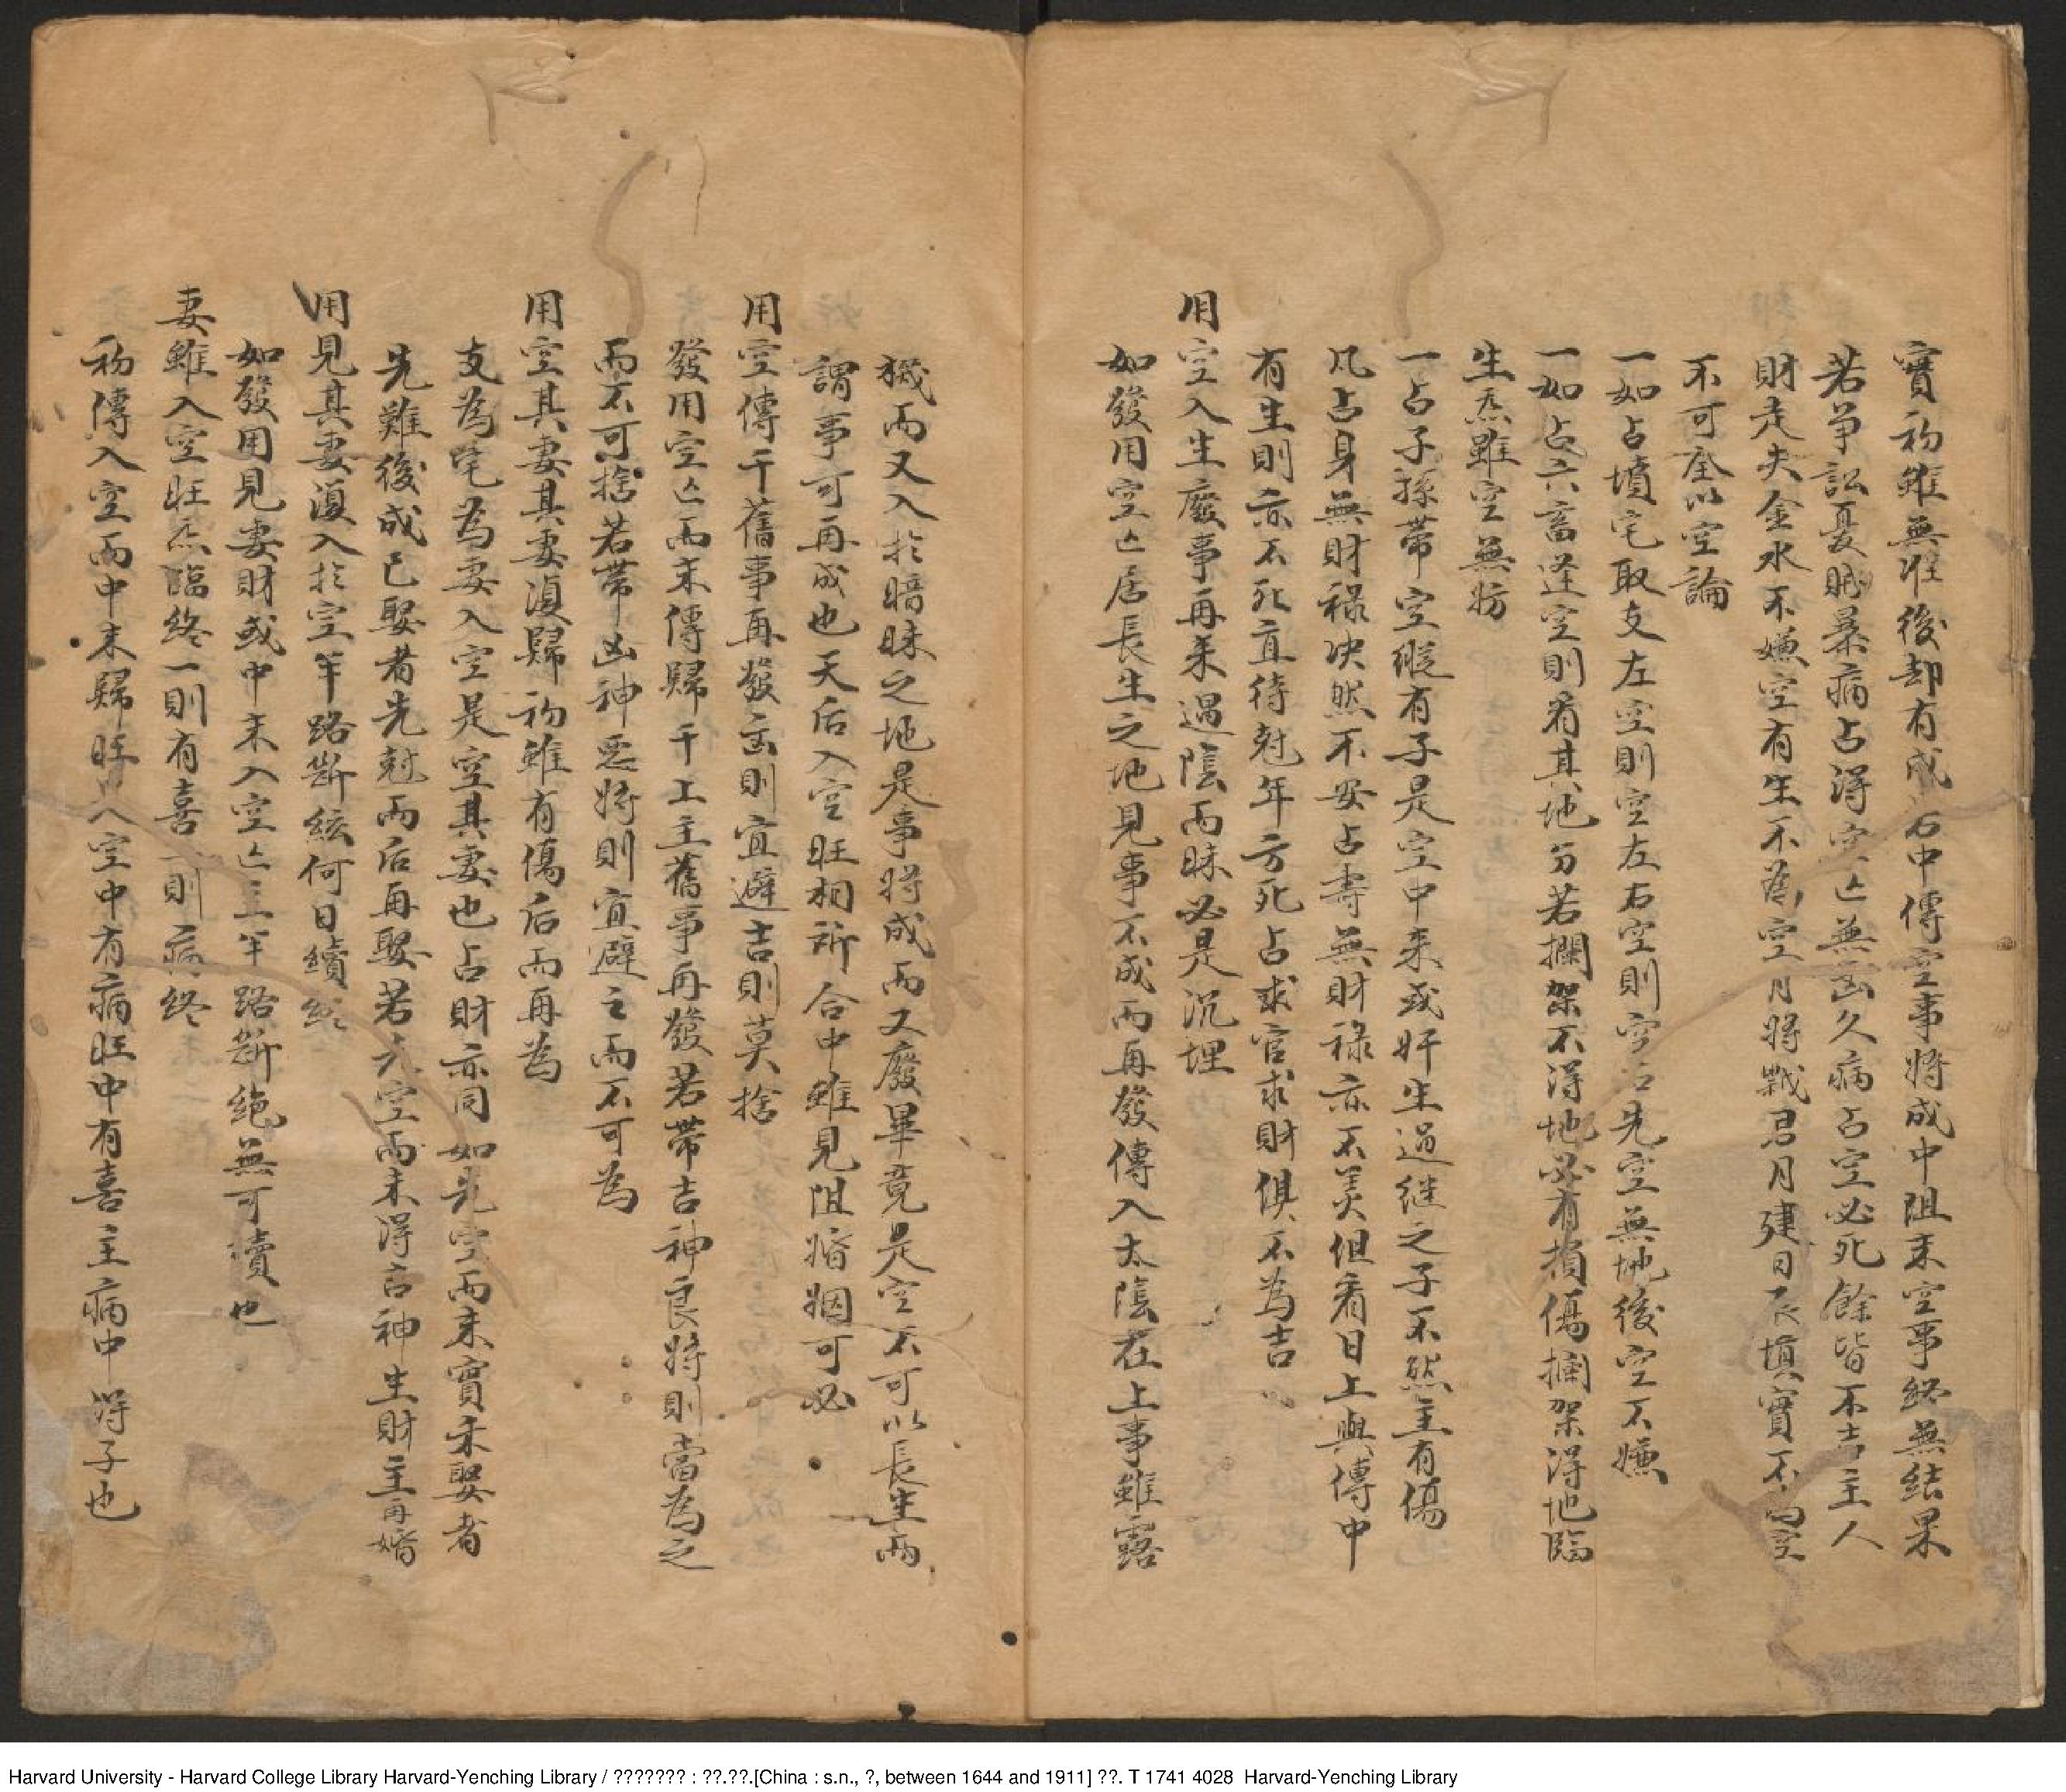 實初雖無准後却有成若中傳空事將成中阻末空事終無結果
若爭訟憂賊暴病占得空亡無凶久病占空必死餘皆不吉主人
財走失金水不嫌空有生不為空月將戰君月建日辰填實不為空
不可全以空論
一如占墳宅取支左空則空左右空則空右先空無地後空不嫌
一如占六畜逢空則看其地分若攔架不得地必有損傷攔架得地臨
生炁雖空無妨
一占子孫帶空縱有子是空中來或奸生過继之子不然主有傷
凡占身無財祿决然不安占壽無財祿亦不美但看日上與傳中
有生則亦不死直待尅年方死占求官求財俱不為吉
用空入生廢事再来遇陰而昧必是沉埋
如發用空亡居長生之地見事不成而再發傳入太陰在上事雖露
機而又入於暗昧之地是事將成而又廢畢竟是空不可以長生而
謂事可再成也天后入空旺相祈合中雖見阻婚姻可必
用空傳干舊事再發凶則宜避吉則莫捨
發用空亡而末傳歸干上主舊事再發若帶吉神良將則當為之
而不可捨若帶凶神惡將則宜避之而不可為
用空其妻其妻復歸初雖有傷后而再為
支為宅為妻入空是空其妻也占財亦同如先空而末實未娶者
先難後成已娶者先尅而后再娶若先空而末得吉神生財主再婚
用見其妻復入於空半路斷絃何日續絃
如發用見妻財或中末入空亡主半路斷絶無可續也
妻雖入空旺炁臨終一則有喜一則病終
初傳入空而中末歸旺空中有病旺中有喜主病中得子也
Harvard University - Harvard College Library Harvard-Yenching Library / ??????? : ??.??.[China : s.n., ?, between 1644 and 1911] ??. T 1741 4028 Harvard-Yenching Library